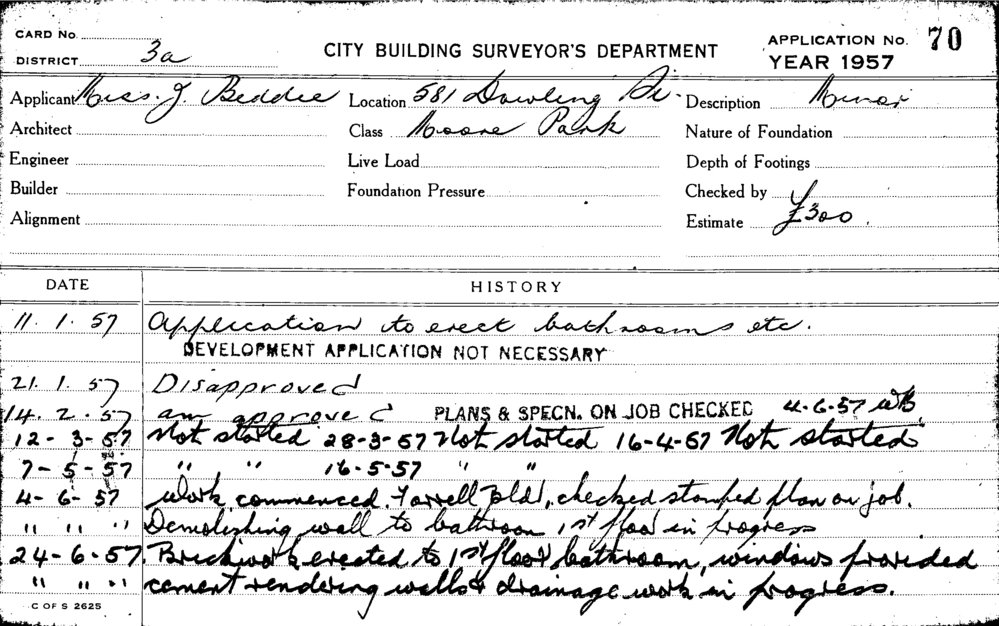 CARD No.
DISTRICT 3a
CITY BUILDING SURVEYOR'S DEPARTMENT
APPLICATION No. 70
YEAR 1957
Applicant Miss. J. Beddie Location 581 Dowling St. Description Minor
Architect Class Moore Park Nature of Foundation
Engineer Live Load Depth of Footings
Builder Foundation Pressure Checked by
Alignment Estimate £300.
DATE HISTORY
11. 1. 57 Application to erect bathrooms etc.
DEVELOPMENT APPLICATION NOT NECESSARY
21. 1. 57 Disapproved
14. 2. 57 am approved PLANS & SPECN. ON JOB CHECKED 4-6-57
12-3-57 Not started 28-3-57 Not started 16-4-57 Not started
7-5-57 " " 16-5-57 " "
4-6-57 Work commenced. checked stamped plan on job.
" " " Demolishing wall to bathroom 1st floor in progress
24-6-57. Brickwork erected to 1st floor bathroom, windows provided
" " " cement rendering walls & drainage work in progress.
C OF S 2625